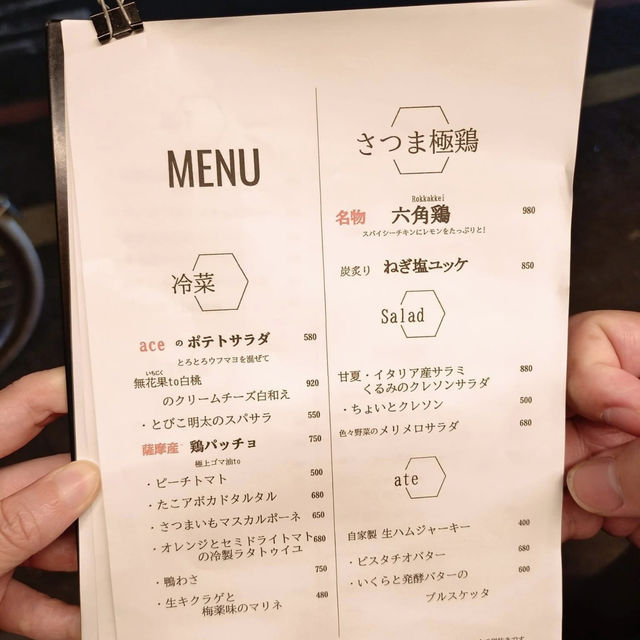 MENU
冷菜
ace の ポテトサラダ 580
とろとろウフマヨを混ぜて
いちじく
無花果to白桃
のクリームチーズ白和え 920
・とびこ明太のスパサラ 550
薩摩産 鶏パッチョ 750
極上ゴマ油to
・ピーチトマト 500
・たこアボカドタルタル 680
・さつまいもマスカルポーネ 650
・オレンジとセミドライトマト 680
の冷製ラタトゥイユ
・鴨わさ 750
・生キクラゲと 480
梅薬味のマリネ
さつま極鶏
Rokkakkei
名物 六角鶏 980
スパイシーチキンにレモンをたっぷりと!
炭炙り ねぎ塩ユッケ 850
Salad
甘夏・イタリア産サラミ 880
くるみのクレソンサラダ
・ちょいとクレソン 500
色々野菜のメリメロサラダ 680
ate
自家製 生ハムジャーキー 400
・ピスタチオバター 680
・いくらと発酵バターの 600
ブルスケッタ